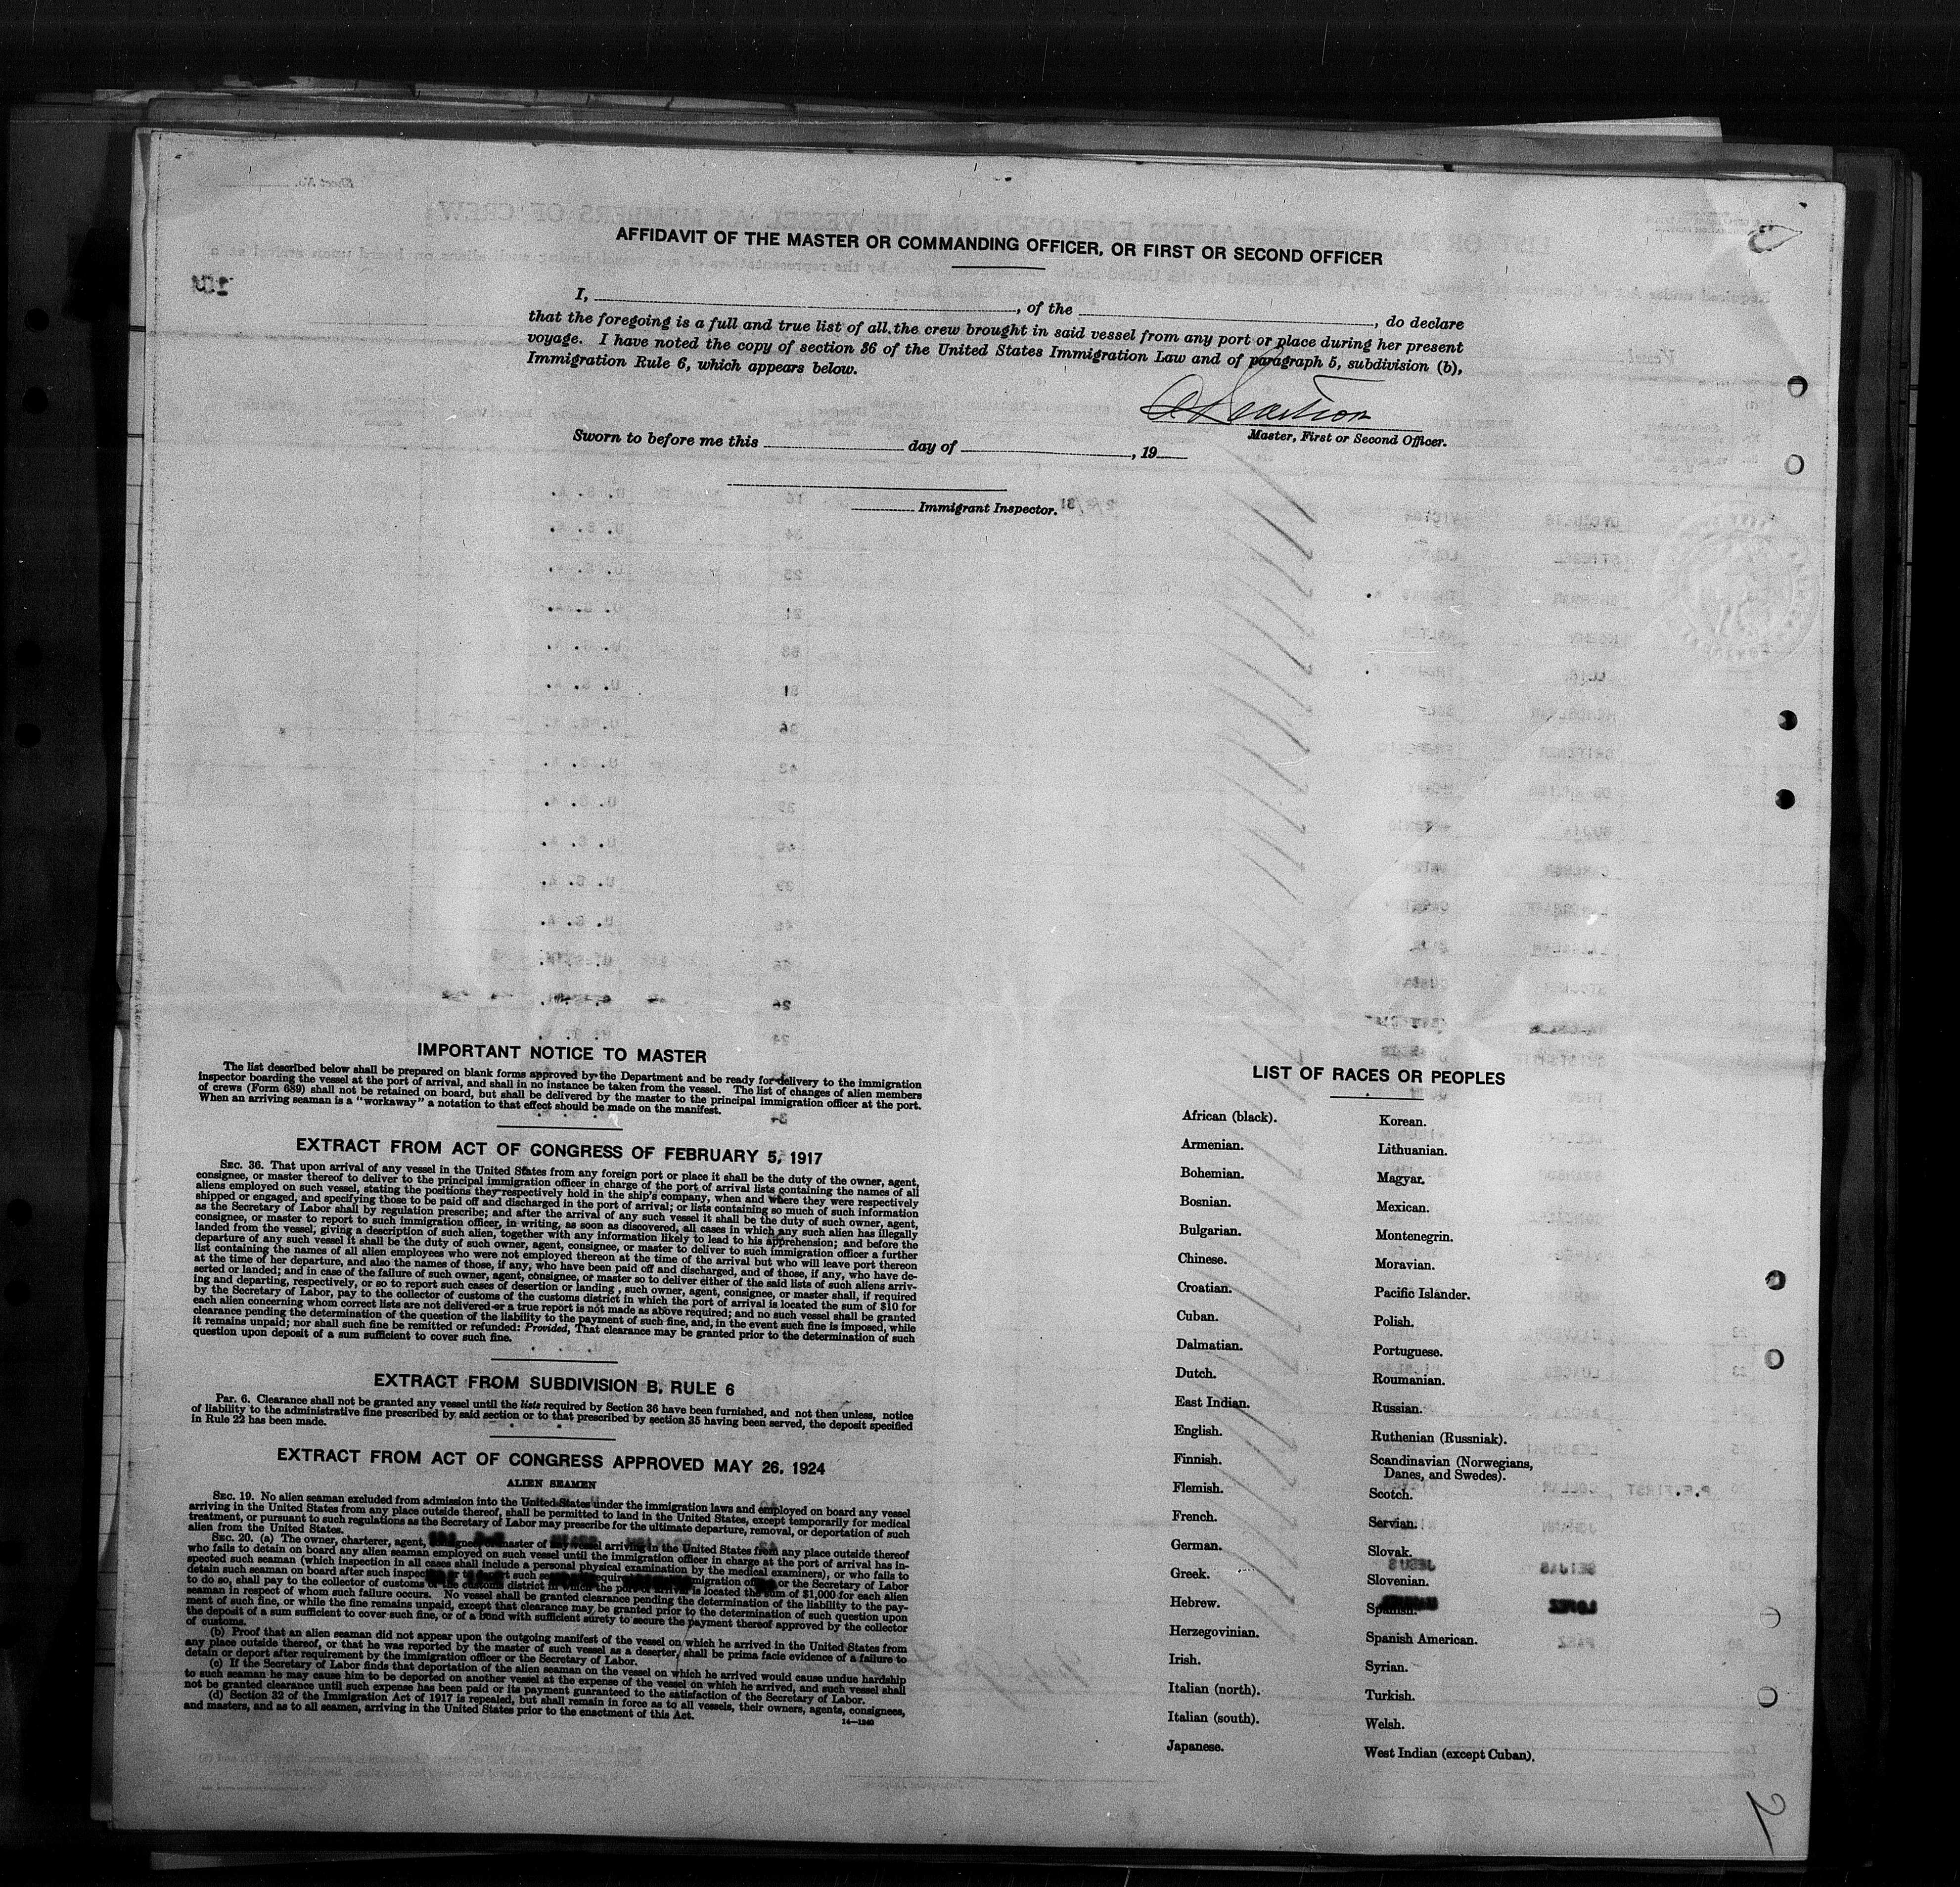 AFFIDAVIT OF THE MASTER OR COMMANDING OFFICER, OR FIRST OR SECOND OFFICER
I, , of the , do declare
that the foregoing is a full and true list of all the crew brought in said vessel from any port or place during her present
voyage. I have noted the copy of section 36 of the United States Immigration Law and of paragraph 5, subdivision (b),
Immigration Rule 6, which appears below.
Master, First or Second Officer.
Sworn to before me this day of , 19
Immigrant Inspector.
IMPORTANT NOTICE TO MASTER
The list described below shall be prepared on blank forms approved by the Department and be ready for delivery to the immigration
inspector boarding the vessel at the port of arrival, and shall in no instance be taken from the vessel. The list of changes of alien members
of crews (Form 689) shall not be retained on board, but shall be delivered by the master to the principal immigration officer at the port.
When an arriving seaman is a "workaway" a notation to that effect should be made on the manifest.
EXTRACT FROM ACT OF CONGRESS OF FEBRUARY 5, 1917
SEC. 36. That upon arrival of any vessel in the United States from any foreign port or place it shall be the duty of the owner, agent,
consignee, or master thereof to deliver to the principal immigration officer in charge of the port of arrival lists containing the names of all
aliens employed on such vessel, stating the positions they respectively hold in the ship's company, when and where they were respectively
shipped or engaged, and specifying those to be paid off and discharged in the port of arrival; or lists containing so much of such information
as the Secretary of Labor shall by regulation prescribe; and after the arrival of any such vessel it shall be the duty of such owner, agent,
consignee, or master to report to such immigration officer, in writing, as soon as discovered, all cases in which any such alien has illegally
landed from the vessel, giving a description of such alien, together with any information likely to lead to his apprehension; and before the
departure of any such vessel it shall be the duty of such owner, agent, consignee, or master to deliver to such immigration officer a further
list containing the names of all alien employees who were not employed thereon at the time of the arrival but who will leave port thereon
at the time of her departure, and also the names of those, if any, who have been paid off and discharged, and of those, if any, who have de-
serted or landed; and in case of the failure of such owner, agent, consignee, or master so to deliver either of the said lists of such aliens arriv-
ing and departing, respectively, or so to report such cases of desertion or landing, such owner, agent, consignee, or master shall, if required
by the Secretary of Labor, pay to the collector of customs of the customs district in which the port of arrival is located the sum of $10 for
each alien concerning whom correct lists are not delivered or a true report is not made as above required; and no such vessel shall be granted
clearance pending the determination of the question of the liability to the payment of such fine, and, in the event such fine is imposed, while
it remains unpaid; nor shall such fine be remitted or refunded: Provided, That clearance may be granted prior to the determination of such
question upon deposit of a sum sufficient to cover such fine.
EXTRACT FROM SUBDIVISION B, RULE 6
Par. 6. Clearance shall not be granted any vessel until the lists required by Section 36 have been furnished, and not then unless, notice
of liability to the administrative fine prescribed by said section or to that prescribed by section 35 having been served, the deposit specified
in Rule 22 has been made.
EXTRACT FROM ACT OF CONGRESS APPROVED MAY 26, 1924
ALIEN SEAMEN
SEC. 19. No alien seaman excluded from admission into the United States under the immigration laws and employed on board any vessel
arriving in the United States from any place outside thereof, shall be permitted to land in the United States, except temporarily for medical
treatment, or pursuant to such regulations as the Secretary of Labor may prescribe for the ultimate departure, removal, or deportation of such
alien from the United States.
SEC. 20. (a) The owner, charterer, agent, master of vessel arriving in the United States from any place outside thereof
who fails to detain on board any alien seaman employed on such vessel until the immigration officer in charge at the port of arrival has in-
spected such seaman (which inspection in all cases shall include a personal physical examination by the medical examiners), or who fails to
detain such seaman on board after such such or the Secretary of Labor
to do so, shall pay to the collector of customs of the customs district in which the port of arrival is located the sum of $1,000 for each alien
seaman in respect of whom such failure occurs. No vessel shall be granted clearance pending the determination of the liability to the pay-
ment of such fine, or while the fine remains unpaid, except that clearance may be granted prior to the determination of such question upon
the deposit of a sum sufficient to cover such fine, or of a bond with sufficient surety to secure the payment thereof approved by the collector
of customs.
(b) Proof that an alien seaman did not appear upon the outgoing manifest of the vessel on which he arrived in the United States from
any place outside thereof, or that he was reported by the master of such vessel as a deserter, shall be prima facie evidence of a failure to
detain or deport after requirement by the immigration officer or the Secretary of Labor.
(c) If the Secretary of Labor finds that deportation of the alien seaman on the vessel on which he arrived would cause undue hardship
to such seaman he may cause him to be deported on another vessel at the expense of the vessel on which he arrived, and such vessel shall
not be granted clearance until such expense has been paid or its payment guaranteed to the satisfaction of the Secretary of Labor.
(d) Section 32 of the Immigration Act of 1917 is repealed, but shall remain in force as to all vessels, their owners, agents, consignees,
and masters, and as to all seamen, arriving in the United States prior to the enactment of this Act.
14—1240
LIST OF RACES OR PEOPLES
African (black).
Armenian.
Bohemian.
Bosnian.
Bulgarian.
Chinese.
Croatian.
Cuban.
Dalmatian.
Dutch.
East Indian.
English.
Finnish.
Flemish.
French.
German.
Greek.
Hebrew.
Herzegovinian.
Irish.
Italian (north).
Italian (south).
Japanese.
Korean.
Lithuanian.
Magyar.
Mexican.
Montenegrin.
Moravian.
Pacific Islander.
Polish.
Portuguese.
Roumanian.
Russian.
Ruthenian (Russniak).
Scandinavian (Norwegians,
Danes, and Swedes).
Scotch.
Servian.
Slovak.
Slovenian.
Spanish.
Spanish American.
Syrian.
Turkish.
Welsh.
West Indian (except Cuban).
2